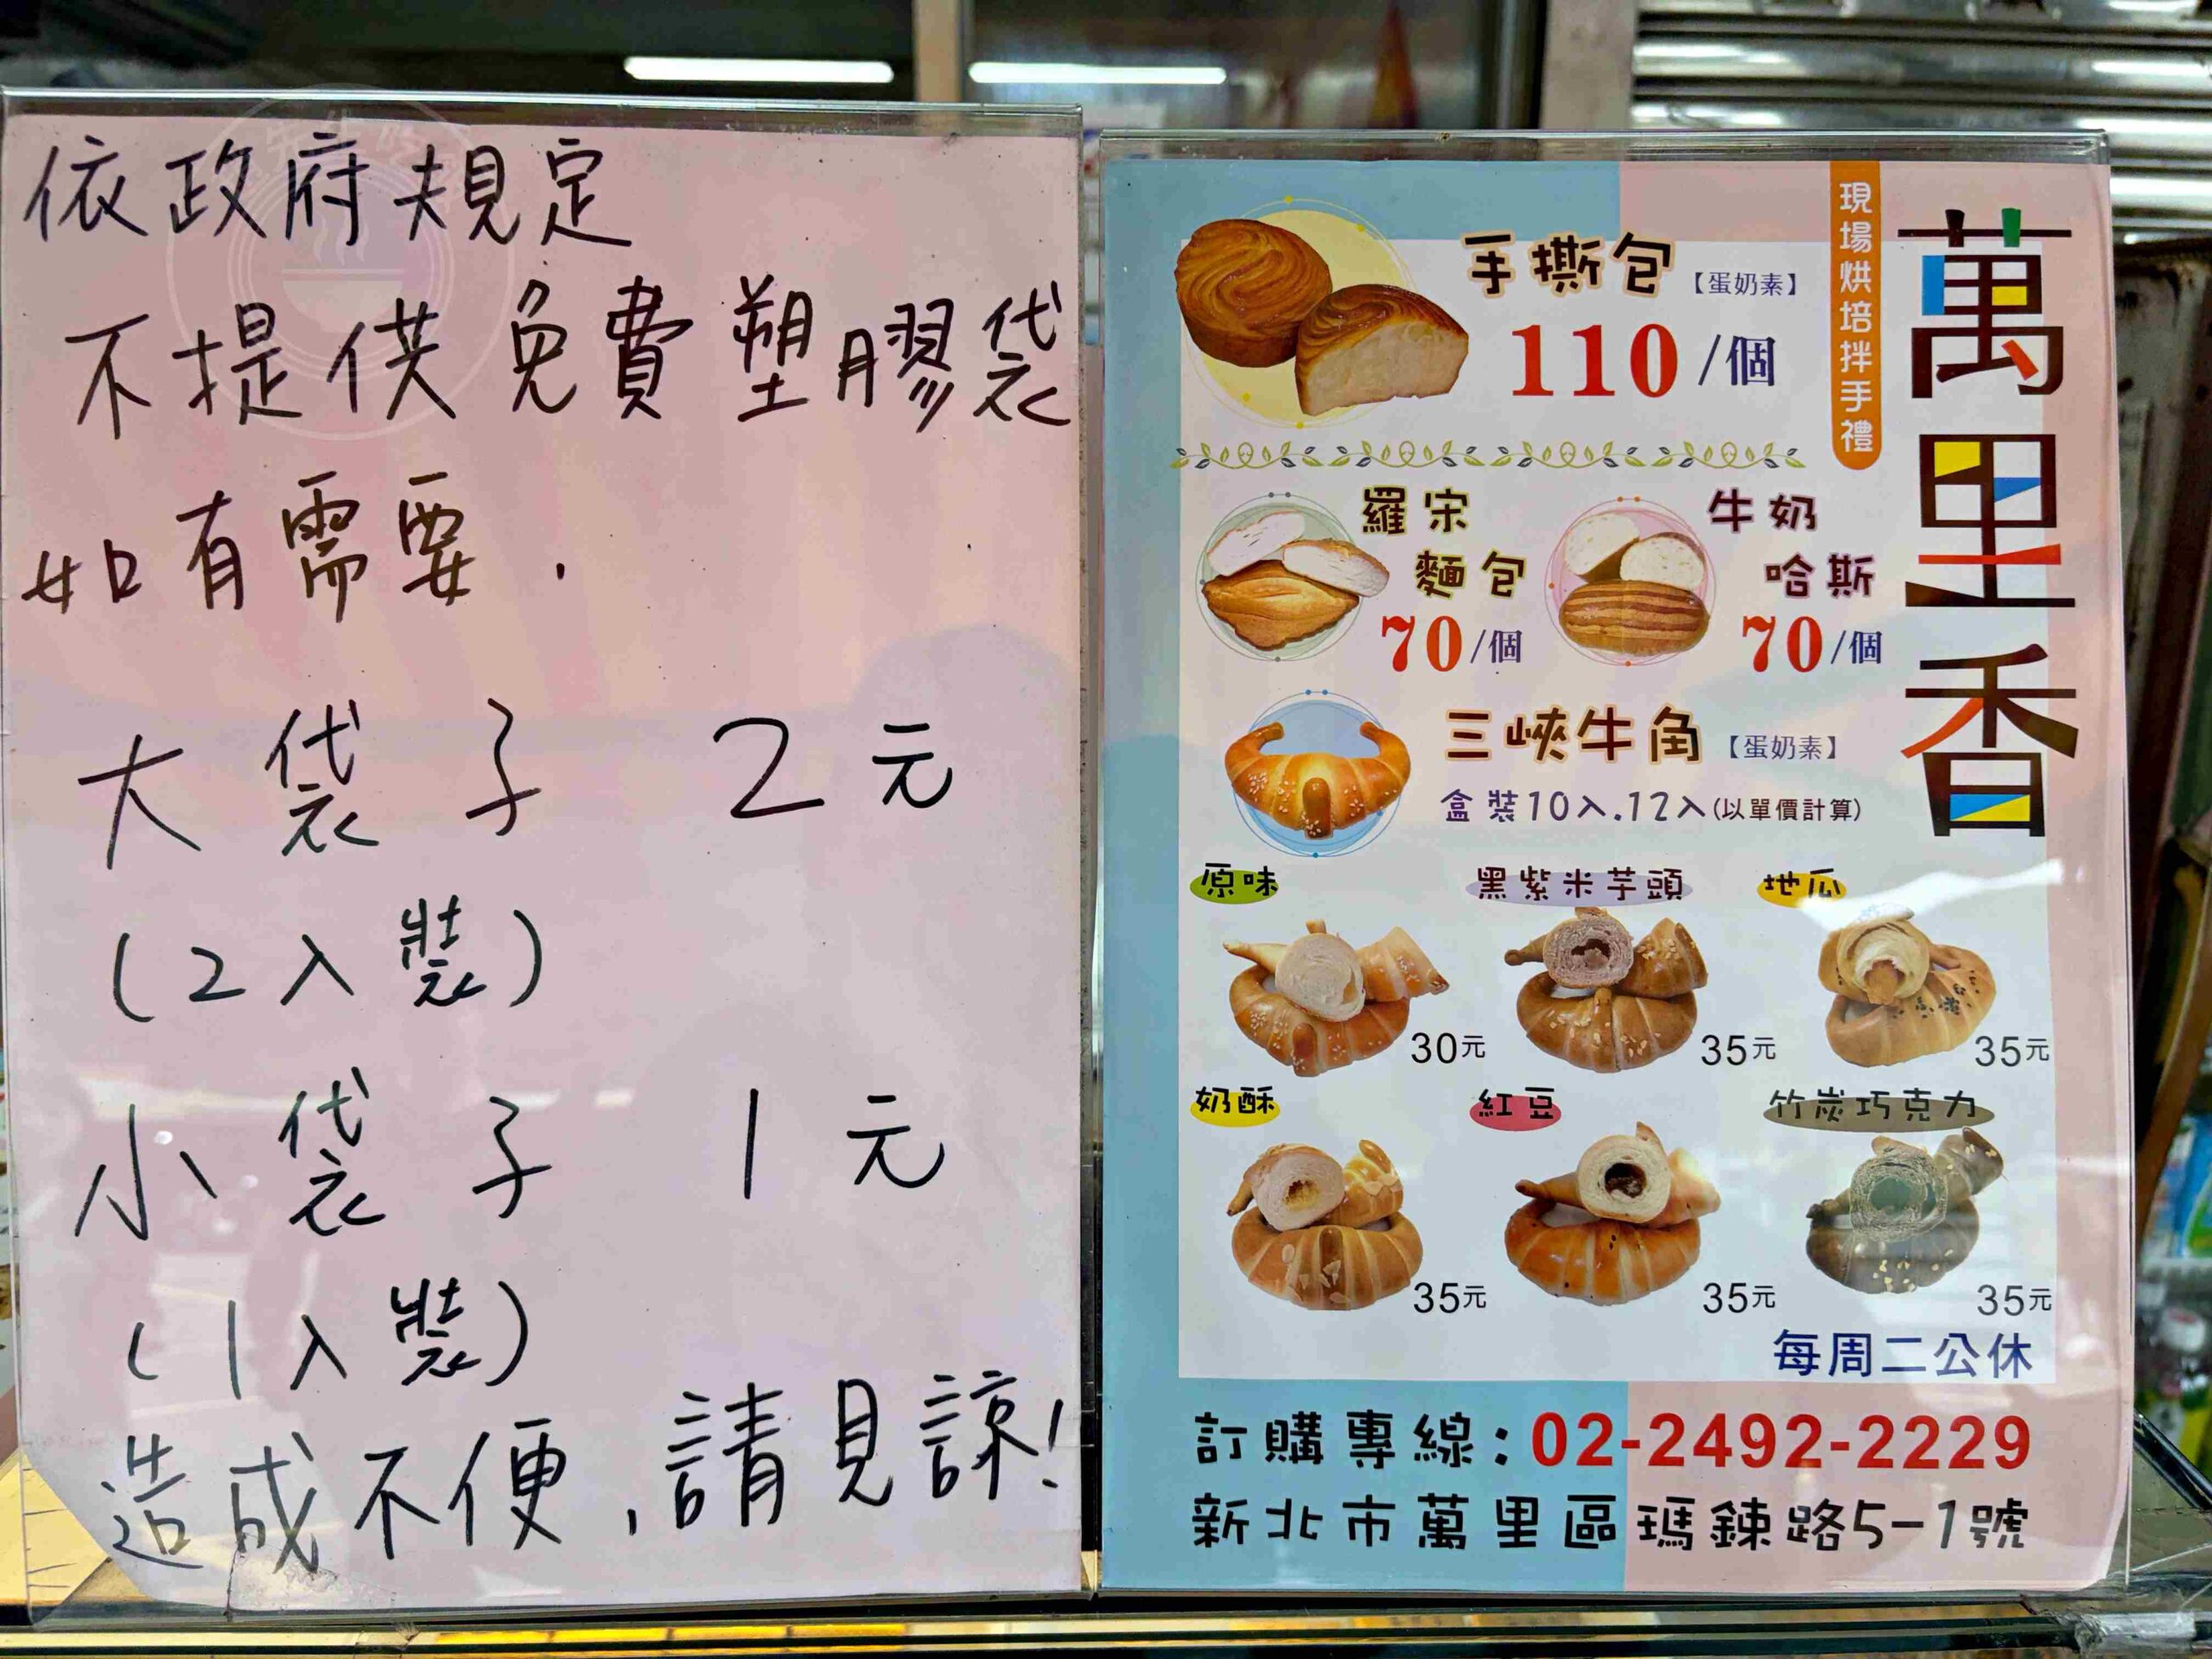 依政府規定
不提供免費塑膠袋
如有需要.
大袋子 2元
(2入裝)
小袋子 1元
(1入裝)
造成不便,請見諒!
萬里香
現場烘培拌手禮
手撕包【蛋奶素】
110/個
羅宋
麵包
70/個
牛奶
哈斯
70/個
三峽牛角【蛋奶素】
盒裝10入.12入(以單價計算)
原味
30元
黑紫米芋頭
35元
地瓜
35元
奶酥
35元
紅豆
35元
竹炭巧克力
35元
每周二公休
訂購專線:02-2492-2229
新北市萬里區瑪鋉路5-1號